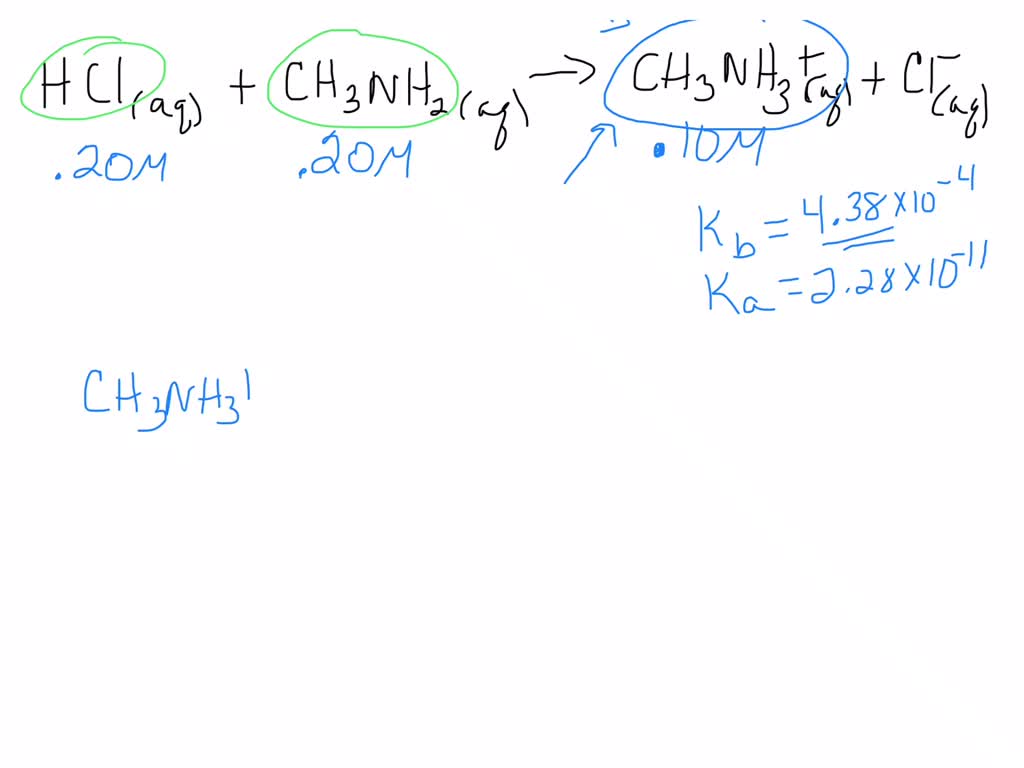 HCl(aq) + CH₃NH₂(aq) → CH₃NH₃⁺(aq) + Cl⁻(aq)
.20M .20M .10M
Kb = 4.38×10⁻⁴
Ka = 2.28×10⁻¹¹
CH₃NH₃